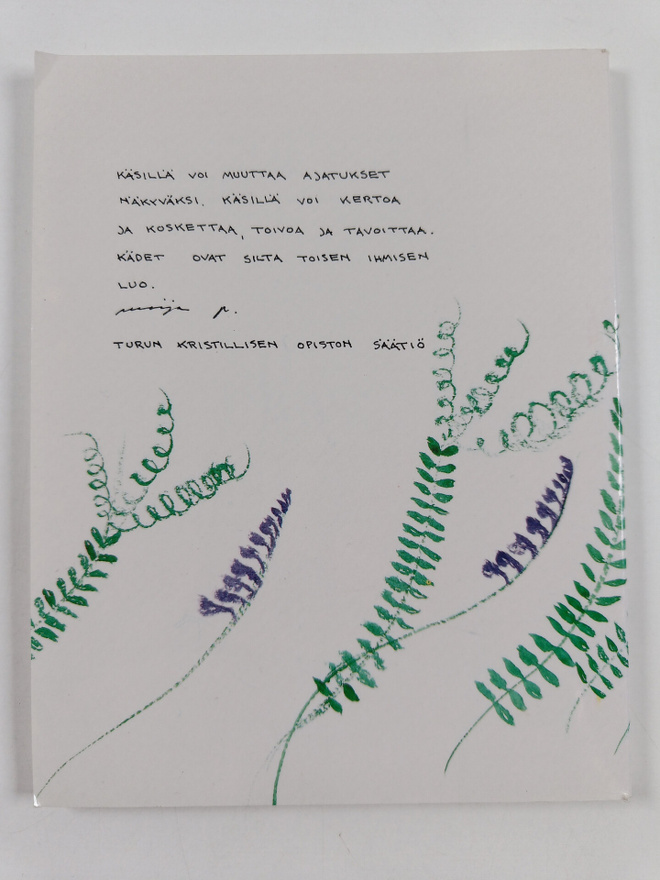 KÄSILLÄ VOI MUUTTAA AJATUKSET
NÄKYVÄKSI. KÄSILLÄ VOI KERTOA
JA KOSKETTAA, TOIVOA JA TAVOITTAA.
KÄDET OVAT SILTA TOISEN IHMISEN
LUO.
maija p.
TURUN KRISTILLISEN OPISTON SÄÄTIÖ